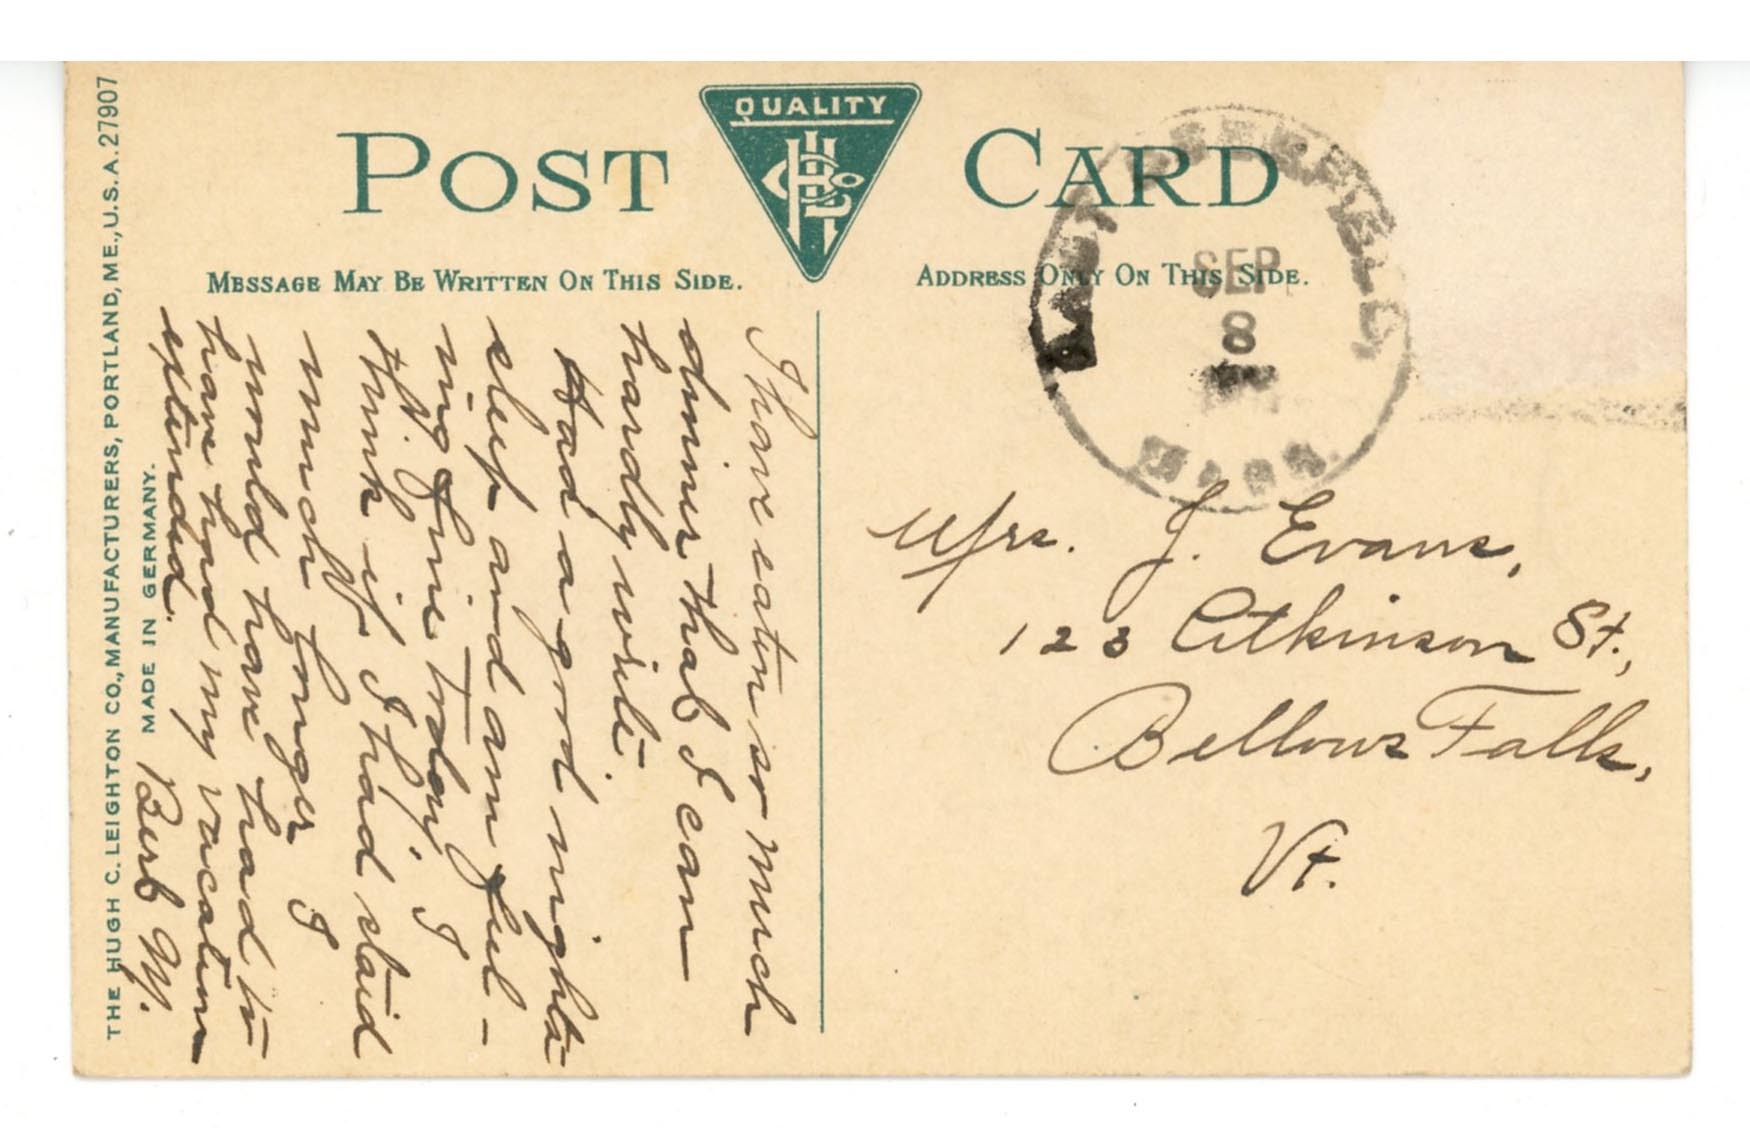 THE HUGH C. LEIGHTON CO., MANUFACTURERS, PORTLAND, ME., U.S.A. 27907
MADE IN GERMANY.
POST CARD
QUALITY
MESSAGE MAY BE WRITTEN ON THIS SIDE.
ADDRESS ONLY ON THIS SIDE.
SEP
8
MASS.
I have eaten so much
dinner that I can
hardly write.
Had a good nights
sleep and am feel-
ing fine today. I
think if I had staid
much longer I
would have had to
have had my vacation
extended.
Mrs. J. Evans,
123 Atkinson St.,
Bellows Falls,
Vt.